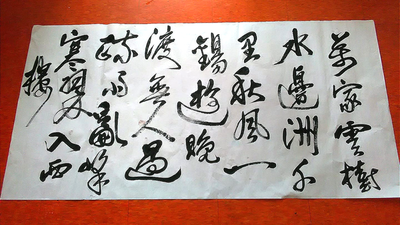 萬家雲樹
水邊洲千
里秋風一
錫遊晚
渡無人過
疏雨亂峰
寒翠入西
樓